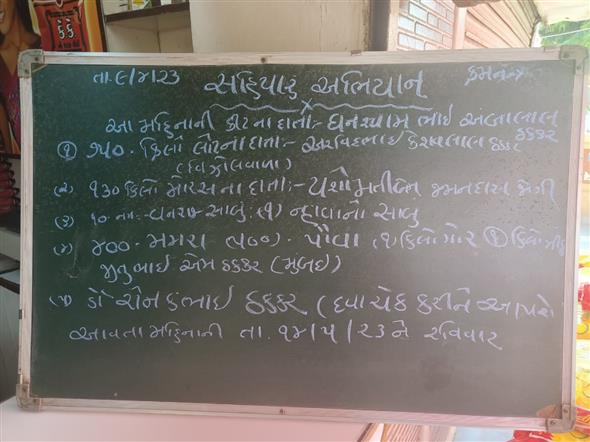 તા.૯/૪/૨૩ સહિયારુ અભિયાન
આ મહિનાની કીટના દાતા:- ઘનશ્યામ ભાઈ અંબાલાલ ઠક્કર
(૧) ૭૫૦ કિલો લોટના દાતા:- અરવિંદભાઈ કેશવલાલ ઠક્કર
(૨) ૧૩૦ કિલો મોરસ ના દાતા:- યશોમતીબેન જમનાદાસ
(૩) ૬૦ નંગ:- વનરાજ સાબુ (૧) ન્હાવાનો સાબુ
(૪) ૪૦૦ મમરા (૫૦૦) પૌંવા (૧) કિલો ગોર (૧) કિલો
જીતુભાઈ એમ ઠક્કર (મુંબઈ)
(૫) ડો રોનકભાઈ ઠક્કર (દવા ચેક કરીને આપશે
આવતા મહિનાની તા. ૧૪/૫/૨૩ને રવિવાર